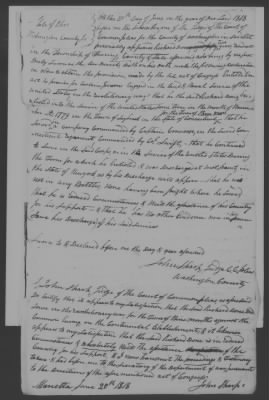 State of Ohio
Washington County Ss
On this 20th day of June in the year of our Lord 1818
before me the Subscriber a Judge of the Court of
Common pleas for the County of Washington in said State
personally appears Richard
in the Township of County & State aforesaid who being by me
duly Sworn the law directs doth on his oath make the following declaration
in order to obtain the provision made by the late act of Congress Entitled an
act to provide for certain persons engaged in the land & Naval Service of the
United States in the revolutionary war; that he the said Richard
enlisted into the service of the United States in the month of
1777 in the town of in the State of Connecticut, that he
Served in a company commanded by Captain in the
Connecticut regiment Commanded by Col. Swift, that he continued
to Serve in the said Corps or in the Service of the United States during
the term for which he Enlisted & was discharged at West Point, in
the State of New york as by his discharge will appear that he was
not in any Battles, none having been fought where he Served
that he is reduced circumstances & Needs the assistance of his Country
for his Support & that he has no other Evidence now in power
Save his discharge of his said services
Sworn to & declared before me the day & year aforesaid
John Sharp Judge C. C. pleas
Washington County
I, John Sharp, Judge of the Court of Common pleas as aforesaid
do certify that it appears to my satisfaction that the said Richard
did Serve in the revolutionary war for the term of Nine months against the
Common Enemy on the Continental Establishment & it likewise
appears to my satisfaction that the said Richard is in reduced
circumstances & absolutely Needs the assistance of his
Country for his Support & I now transmit the proceedings & testimony
taken & had before me to the Secretary of the department of war pursuant
to the directions of the aforementioned act of Congress
Marietta June 20th 1818 John Sharp